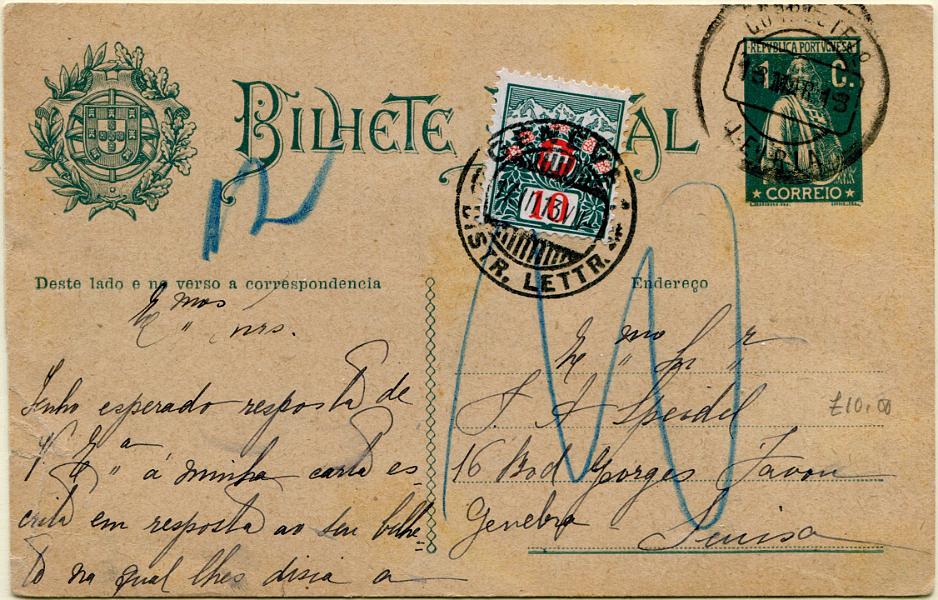 BILHETE AL
REPVBLICA PORTVGVESA
1 C.
CORREIO
LEIRIA
GENÈVE
10
DISTR. LETTR.
Deste lado e no verso a correspondencia
Endereço
Exmos
Snrs.
Tenho esperado resposta de
á minha carta es-
crita em resposta ao seu bilhe-
te na qual lhes disia a
Exmo Snr
A Speidel
16 Bod Gorges Favon
Genebra
Suissa
£10.00